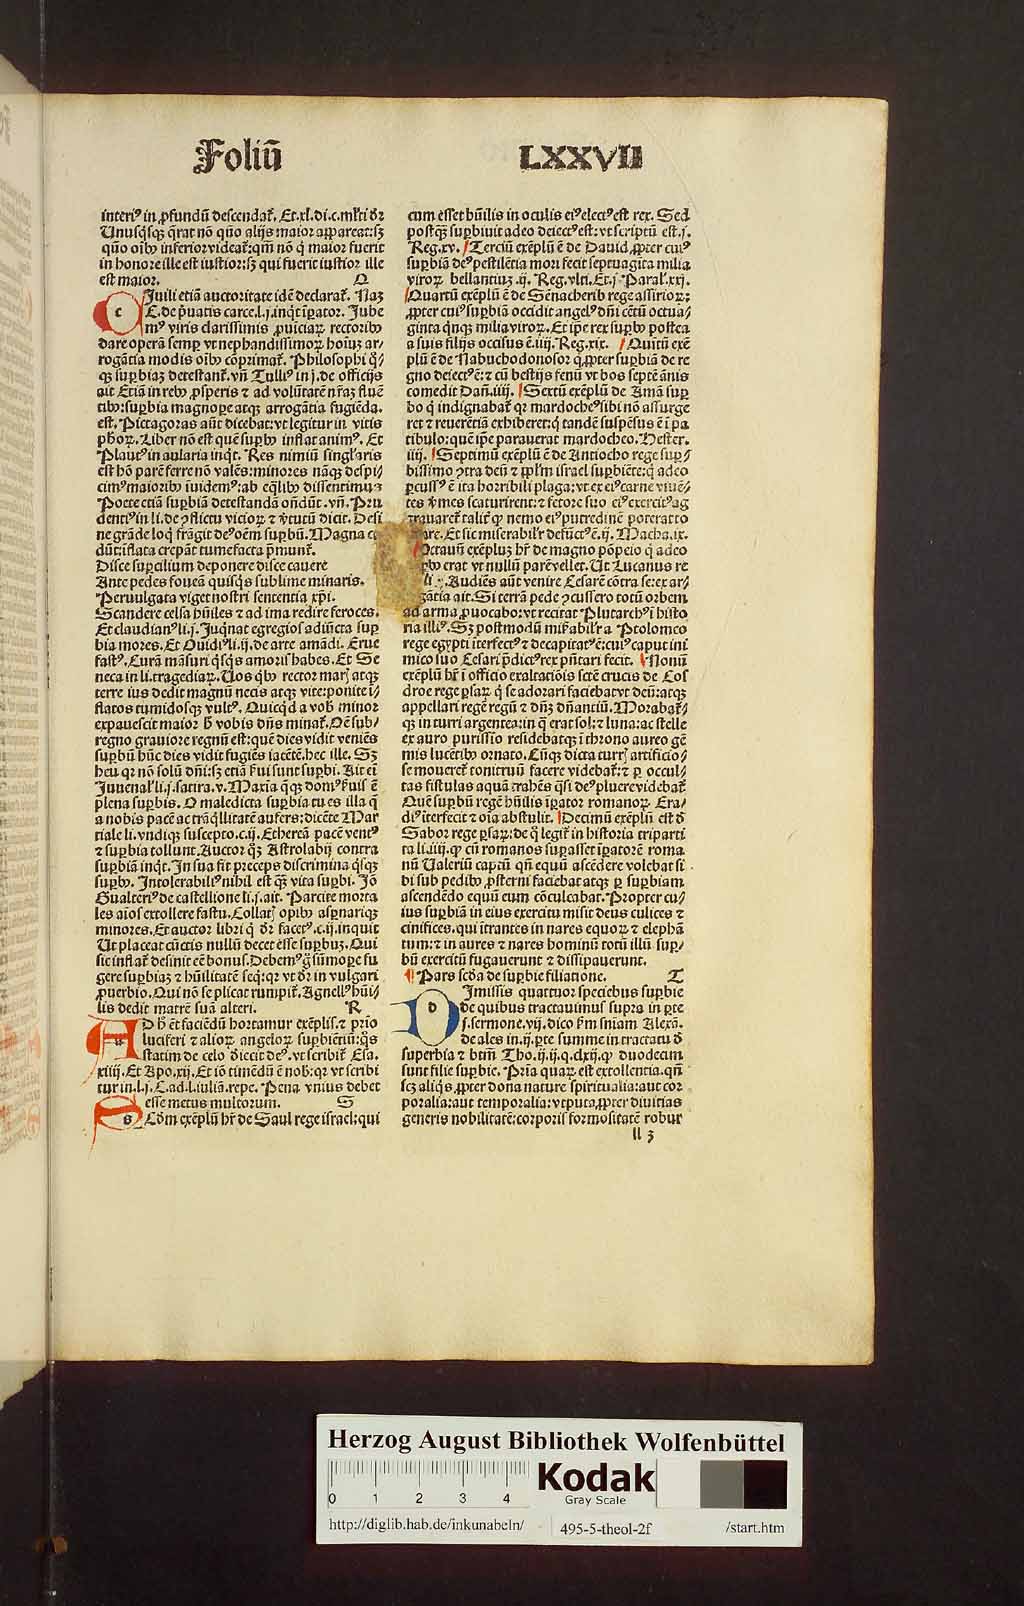 Foliū LXXVII
interi⁹ in ꝓfundū descendat᷑. Et.xl.di.c.ml̓ti dr̄
Unusq̄sqꝫ q̄rat nō quō alijs maior appareat:sꝫ
quō oībꝰ inferior videat᷑:qm̄ nō q̄ maior fuerit
in honore ille est iustior:sꝫ qui fuerit iustior ille
est maior. Q
Iuili etiā auctoritate idē declarat᷑. Naꝫ
C.de p̄uatis carce.l.j.inqt īꝑator. Jube
m⁹ viris clarissimis ꝓuīciaꝝ rectoribꝰ
dare operā semꝑ vt nephandissimoꝝ hoīuꝫ ar-
rogātia modis oībꝰ cōprimat᷑. Philosophi q̄-
qꝫ suꝑbiaꝫ detestant᷑. vn̄ Tulli⁹ in j.de officijs
ait Etiā in rebꝰ ꝓsꝑis ⁊ ad volūtatē nr̄aꝫ fluē
tibꝰ:suꝑbia magnopere atqꝫ arrogātia fugiēda.
est. Pictagoras aūt dicebat:vt legitur in vitis
ph̄oꝝ. Liber nō est quē suꝑbꝰ inflat anim⁹. Et
Plaut⁹ in aularia inqt. Res nimiū singl̓aris
est hō parē ferre nō valēs:minores nāqꝫ despi-
cim⁹ maioribꝰ īuidem⁹:ab eq̄libꝰ dissentimus
Poete etiā suꝑbiā detestandā on̄dūt. vn̄. Pru
denti⁹ in li.de ꝯflictu vicioꝝ ⁊ v̓tutū dicit. Desi
ne grāde loq̄ frāgit de⁹ oēm suꝑbū. Magna ca
dūt:īflata crepāt tumefacta p̄munt᷑.
Disce suꝑcilium deponere disce cauere
Ante pedes foueā quisq̄s sublime minaris.
Peruulgata viget nostri sententia xp̄i.
Scandere celsa hūiles ⁊ ad ima redire feroces.
Et claudian⁹ li.j. Juq̄nat egregios adiūcta suꝑ
bia mores. Et Ouidi⁹ li.ij.de arte amādi. Erue
fast⁹. Curā māsuri q̄sq̄s amoris habes. Et Se
neca in li.tragediaꝝ. Uos qbꝰ rector marꝭ atqꝫ
terre ius dedit magnū necis atqꝫ vite:ponite ī-
flatos tumidosqꝫ vult⁹. Quicqd a vobꝭ minor
expauescit maior hꝰ vobis dn̄s minat᷑. Oē sub-
regno grauiore regnū est:quē dies vidit veniēs
suꝑbū hūc dies vidit fugiēs iacētē.hec ille. Sꝫ
heu qr nō solū dn̄i:sꝫ etiā ẜui sunt suꝑbi. Ait ei
Juuenal̓ li.j.satira.v. Maxīa q̄qꝫ dom⁹ ẜuis ē
plena suꝑbis. O maledicta suꝑbia tu es illa q̄
a nobis pacē ac trāq̄llitatē aufers:dicēte Mar
tiale li.vndiqꝫ suscepto.c.ij. Etherеā pacē vent⁹
⁊ suꝑbia tollunt. Auctor qꝫ Astrolabij contra
suꝑbiā inqt. In sua fit preceps discrimina q̄sqꝫ
suꝑbꝰ. Intolerabili⁹ nihil est qꝫ vita suꝑbi. Jō
Gualteri⁹ de castellione li.j.ait. Parcite morta
les aīos extollere fastu. Collatꝭ opibꝰ asꝑnarique
minores. Et auctor libri q̄ dr̄ facet⁹.c.ij.inquit
Ut placeat cūctis nullū decet esse suꝑbuꝫ. Qui
sic inflat᷑ desinit eē bonus. Debem⁹ g̊ sūmope fu
gere suꝑbiaꝫ ⁊ hūilitatē seq̄:qr vt dr̄ in vulgari
ꝓuerbio. Qui nō se plicat rumpit᷑. Agnell⁹ hūi-
lis dedit matrē suā alteri. R
D hꝰ ēt faciēdū hortamur exēplis.⁊ pr̄io
luciferi ⁊ alioꝝ angeloꝝ suꝑbiētiū:q̄s
statim de celo deiecit de⁹. vt scribit᷑ Esa.
xiiij. Et Apo.xij. Et iō timēdū ē nobꝭ:qr vt scribi
tur in.l.j. C.ad.l.iuliā.repe. Pena vnius debet
esse metus multorum. S
Ecōm exēplū hr̄ de Saul rege israel:qui
cum esset hūilis in oculis ei⁹ elect⁹ est rex. Sed
postqꝫ suꝑbiuit adeo deiect⁹ est:vt scriptū est.j.
Reg.xv. Terciū exēplū ē de Dauid ꝓpter cui⁹
suꝑbiā de⁹ pestilētia mori fecit septuagīta milia
viroꝝ bellantiuꝫ.ij. Reg.vlti. Et.j. Paral̓.xxj.
Quartū exēplū ē de Senacherib rege assirioꝝ:
ꝓpter cui⁹ suꝑbiā occidit angel⁹ dn̄i cētū octua-
ginta q̄nqꝫ milia viroꝝ. Et ip̄e rex suꝑbꝰ postea
a suis filijs occisus ē.iiij. Reg.xix. Quītū exē
plū ē de Nabuchodonosor q̄ ꝓpter suꝑbiā de re
gno deiect⁹ ē:⁊ cū bestijs fenū vt bos septē ānis
comedit Dan̄.iiij. Sextū exēplū de Amā suꝑ
bo q̄ indignabat᷑ qr mardoche⁹ sibi nō assurge
ret ⁊ reuerētiā exhiberet:q̄ tandē suspēsus ē ī pa
tibulo:quē ip̄e parauerat mardocheo. Hester.
iiij. Septimū exēplū ē de Antiocho rege suꝑ-
bissimo ꝯtra deū ⁊ ppl̓m israel suꝑbiēte:q̄ adeo
ꝑcuss⁹ ē ita horribili plaga:vt ex ei⁹ carne viuē-
tes v̓mes scaturirent:⁊ fetore suo ei⁹ exercit⁹ ag
grauaret᷑ talit̓ ꝙ nemo ei⁹ putredinē poterat to
Et sic miserabil̓r defūct⁹ ē.ij. Macha.ix.
Octauū exēpluꝫ hr̄ de magno pōpeio q̄ adeo
erat vt nullū parē vellet. Ut Lucanus re
Audiēs aūt venire Cesarē cōtra se:ex ar-
ait. Si terrā pede ꝯcussero totū orbem
ad arma ꝓuocabo:vt recitat Plutarch⁹ ī histo
ria illi⁹. Sꝫ postmodū mirabil̓r a Ptolomeo
rege egypti īterfect⁹ ⁊ decapitat⁹ ē:cui⁹ caput ini
mico suo Cesari p̄dict⁹ rex pn̄tari fecit. Nonū
exēplū hr̄ ī officio exaltatiōis scē crucis de Cos
droe rege ꝑsaꝝ q̄ se adorari faciebat vt deū:atqꝫ
appellari regē regū ⁊ dn̄ꝫ dn̄antiū. Morabat᷑-
qꝫ in turri argentea:in q̄ erāt sol:⁊ luna:ac stelle
ex auro purissīo residebatqꝫ ī throno aureo gē
mis lucētibꝰ ornato. Cūqꝫ dicta turrꝭ artificio-
se moueret᷑ tonitruū facere videbat᷑:⁊ ꝑ occul-
tas fistulas aquā trahēs q̄si de⁹ pluere videbat᷑
Quē suꝑbū regē hūilis īꝑator romanoꝝ Era-
di⁹ īterfecit ⁊ oīa abstulit. Decimū exēplū est d̓
Sabor rege ꝑsaꝝ:de q̄ legit᷑ in historia triparti
ta li.iiij.ꝙ cū romanos suꝑasset īꝑatorē roma
nū Ualeriū captū qn̄ equū ascēdere volebat si
bi sub pedibꝰ ꝓsterni faciebat atqꝫ ꝑ suꝑbiam
ascendēdo equū eum cōculcabat. Propter cu-
ius suꝑbiā in eius exercitu misit deus culices ⁊
cinifices. qui ītrantes in nares equoꝝ ⁊ elephā
tum:⁊ in aures ⁊ nares hominū totū illū suꝑ-
bū exercitū fugauerunt ⁊ dissipauerunt.
¶ Pars scd̄a de suꝑbie filiatione. T
Imissis quattuor speciebus suꝑbie
de quibus tractauimus supra in ꝑte
j.sermone.vij.dico ẜm sniam Alexā.
de ales in.ij.ꝑte summe in tractatu d̓
superbia ⁊ btm̄ Tho.ij.ij.q.clxij.ꝙ duodecim
sunt filie suꝑbie. Pr̄ia quaꝝ est extollentia.qn̄
scꝫ aliq̄s ꝓpter dona nature spiritualia:aut cor
poralia:aut temporalia:vtputa ꝓpter diuitias
generis nobilitatē:corporis formositatē robur
ll 3
Herzog August Bibliothek Wolfenbüttel
0 1 2 3 4
Kodak
Gray Scale
http://diglib.hab.de/inkunabeln/ 495-5-theol-2f /start.htm